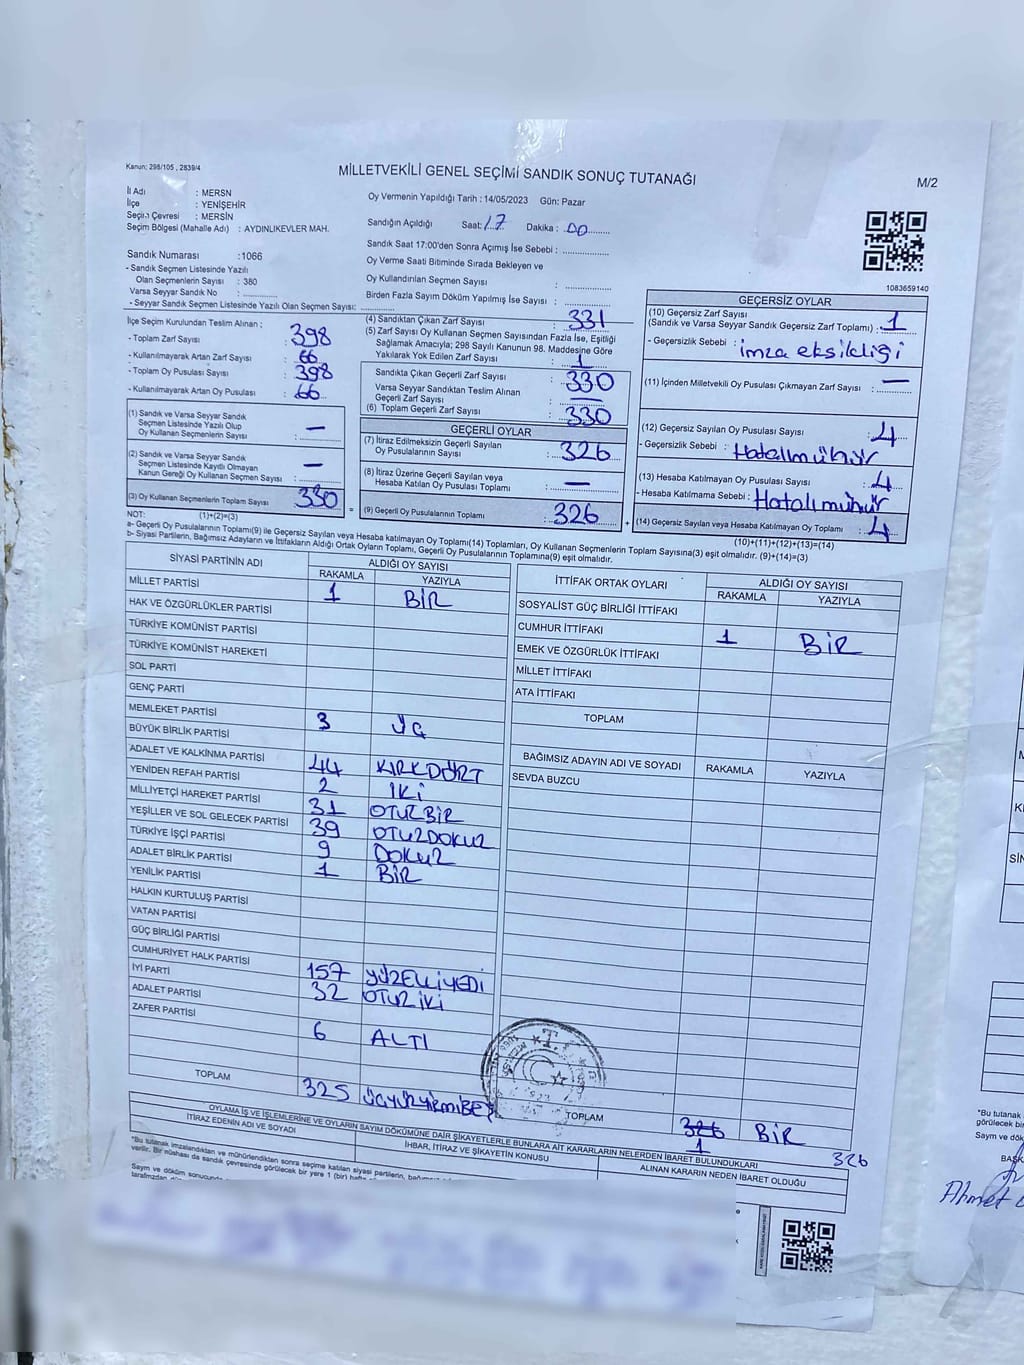 Kanun: 298/105 , 2839/4
MİLLETVEKİLİ GENEL SEÇİMİ SANDIK SONUÇ TUTANAĞI
M/2
İl Adı : MERSN
İlçe : YENİŞEHİR
Seçim Çevresi : MERSİN
Seçim Bölgesi (Mahalle Adı) : AYDINLIKEVLER MAH.
Oy Vermenin Yapıldığı Tarih : 14/05/2023 Gün: Pazar
Sandığın Açıldığı Saat: 17 Dakika : 00
Sandık Saat 17:00'den Sonra Açımış İse Sebebi :
Oy Verme Saati Bitiminde Sırada Bekleyen ve
Oy Kullandırılan Seçmen Sayısı :
Birden Fazla Sayım Döküm Yapılmış İse Sayısı :
1083659140
Sandık Numarası :1066
- Sandık Seçmen Listesinde Yazılı
Olan Seçmenlerin Sayısı : 380
Varsa Seyyar Sandık No :
- Seyyar Sandık Seçmen Listesinde Yazılı Olan Seçmen Sayısı:
İlçe Seçim Kurulundan Teslim Alınan :
- Toplam Zarf Sayısı : 398
- Kullanılmayarak Artan Zarf Sayısı : 66
- Toplam Oy Pusulası Sayısı : 398
- Kullanılmayarak Artan Oy Pusulası : 66
(1) Sandık ve Varsa Seyyar Sandık
Seçmen Listesinde Yazılı Olup
Oy Kullanan Seçmenlerin Sayısı : —
(2) Sandık ve Varsa Seyyar Sandık
Seçmen Listesinde Kayıtlı Olmayan
Kanun Gereği Oy Kullanan Seçmen Sayısı : —
(3) Oy Kullanan Seçmenlerin Toplam Sayısı 330
(1)+(2)=(3)
(4) Sandıktan Çıkan Zarf Sayısı : 331
(5) Zarf Sayısı Oy Kullanan Seçmen Sayısından Fazla İse, Eşitliği
Sağlamak Amacıyla; 298 Sayılı Kanunun 98. Maddesine Göre
Yakılarak Yok Edilen Zarf Sayısı : 1
Sandıkta Çıkan Geçerli Zarf Sayısı : 330
Varsa Seyyar Sandıktan Teslim Alınan
Geçerli Zarf Sayısı : —
(6) Toplam Geçerli Zarf Sayısı : 330
GEÇERLİ OYLAR
(7) İtiraz Edilmeksizin Geçerli Sayılan
Oy Pusulalarının Sayısı : 326
(8) İtiraz Üzerine Geçerli Sayılan veya
Hesaba Katılan Oy Pusulası Toplamı : —
= (9) Geçerli Oy Pusulalarının Toplamı : 326 +
GEÇERSİZ OYLAR
(10) Geçersiz Zarf Sayısı
(Sandık ve Varsa Seyyar Sandık Geçersiz Zarf Toplamı) : 1
- Geçersizlik Sebebi : imza eksikliği
(11) İçinden Milletvekili Oy Pusulası Çıkmayan Zarf Sayısı : —
(12) Geçersiz Sayılan Oy Pusulası Sayısı : 4
- Geçersizlik Sebebi : Hatalı mühür
(13) Hesaba Katılmayan Oy Pusulası Sayısı : 4
- Hesaba Katılmama Sebebi : Hatalı mühür
(14) Geçersiz Sayılan veya Hesaba Katılmayan Oy Toplamı : 4
(10)+(11)+(12)+(13)=(14)
NOT:
a- Geçerli Oy Pusulalarının Toplamı(9) ile Geçersiz Sayılan veya Hesaba Katılmayan Oy Toplamı(14) Toplamları, Oy Kullanan Seçmenlerin Toplam Sayısına(3) eşit olmalıdır. (9)+(14)=(3)
b- Siyasi Partilerin, Bağımsız Adayların ve İttifakların Aldığı Ortak Oyların Toplamı, Geçerli Oy Pusulalarının Toplamına(9) eşit olmalıdır.
SİYASİ PARTİNİN ADI ALDIĞI OY SAYISI
RAKAMLA YAZIYLA
MİLLET PARTİSİ 1 BİR
HAK VE ÖZGÜRLÜKLER PARTİSİ
TÜRKİYE KOMÜNİST PARTİSİ
TÜRKİYE KOMÜNİST HAREKETİ
SOL PARTİ
GENÇ PARTİ
MEMLEKET PARTİSİ 3 ÜÇ
BÜYÜK BİRLİK PARTİSİ
ADALET VE KALKINMA PARTİSİ 44 KIRKDÖRT
YENİDEN REFAH PARTİSİ 2 İKİ
MİLLİYETÇİ HAREKET PARTİSİ 31 OTUZBİR
YEŞİLLER VE SOL GELECEK PARTİSİ 39 OTUZDOKUZ
TÜRKİYE İŞÇİ PARTİSİ 9 DOKUZ
ADALET BİRLİK PARTİSİ 1 BİR
YENİLİK PARTİSİ
HALKIN KURTULUŞ PARTİSİ
VATAN PARTİSİ
GÜÇ BİRLİĞİ PARTİSİ
CUMHURİYET HALK PARTİSİ 157 YÜZELLİYEDİ
İYİ PARTİ 32 OTUZİKİ
ADALET PARTİSİ
ZAFER PARTİSİ 6 ALTI
TOPLAM 325 ÜÇYÜZYİRMİBEŞ
İTTİFAK ORTAK OYLARI ALDIĞI OY SAYISI
RAKAMLA YAZIYLA
SOSYALİST GÜÇ BİRLİĞİ İTTİFAKI
CUMHUR İTTİFAKI 1 BİR
EMEK VE ÖZGÜRLÜK İTTİFAKI
MİLLET İTTİFAKI
ATA İTTİFAKI
TOPLAM
BAĞIMSIZ ADAYIN ADI VE SOYADI RAKAMLA YAZIYLA
SEVDA BUZCU
TOPLAM 326 BİR
1 326
OYLAMA İŞ VE İŞLEMLERİNE VE OYLARIN SAYIM DÖKÜMÜNE DAİR ŞİKAYETLERLE BUNLARA AİT KARARLARIN NELERDEN İBARET BULUNDUKLARI
İTİRAZ EDENİN ADI VE SOYADI İHBAR, İTİRAZ VE ŞİKAYETİN KONUSU ALINAN KARARIN NEDEN İBARET OLDUĞU
"Bu tutanak imzalandıktan ve mühürlendikten sonra seçime katılan siyasi partilerin,
Sayım ve döküm sonucunda
"Bu tutanak
görülecek bir
Sayım ve dök
Ahmet